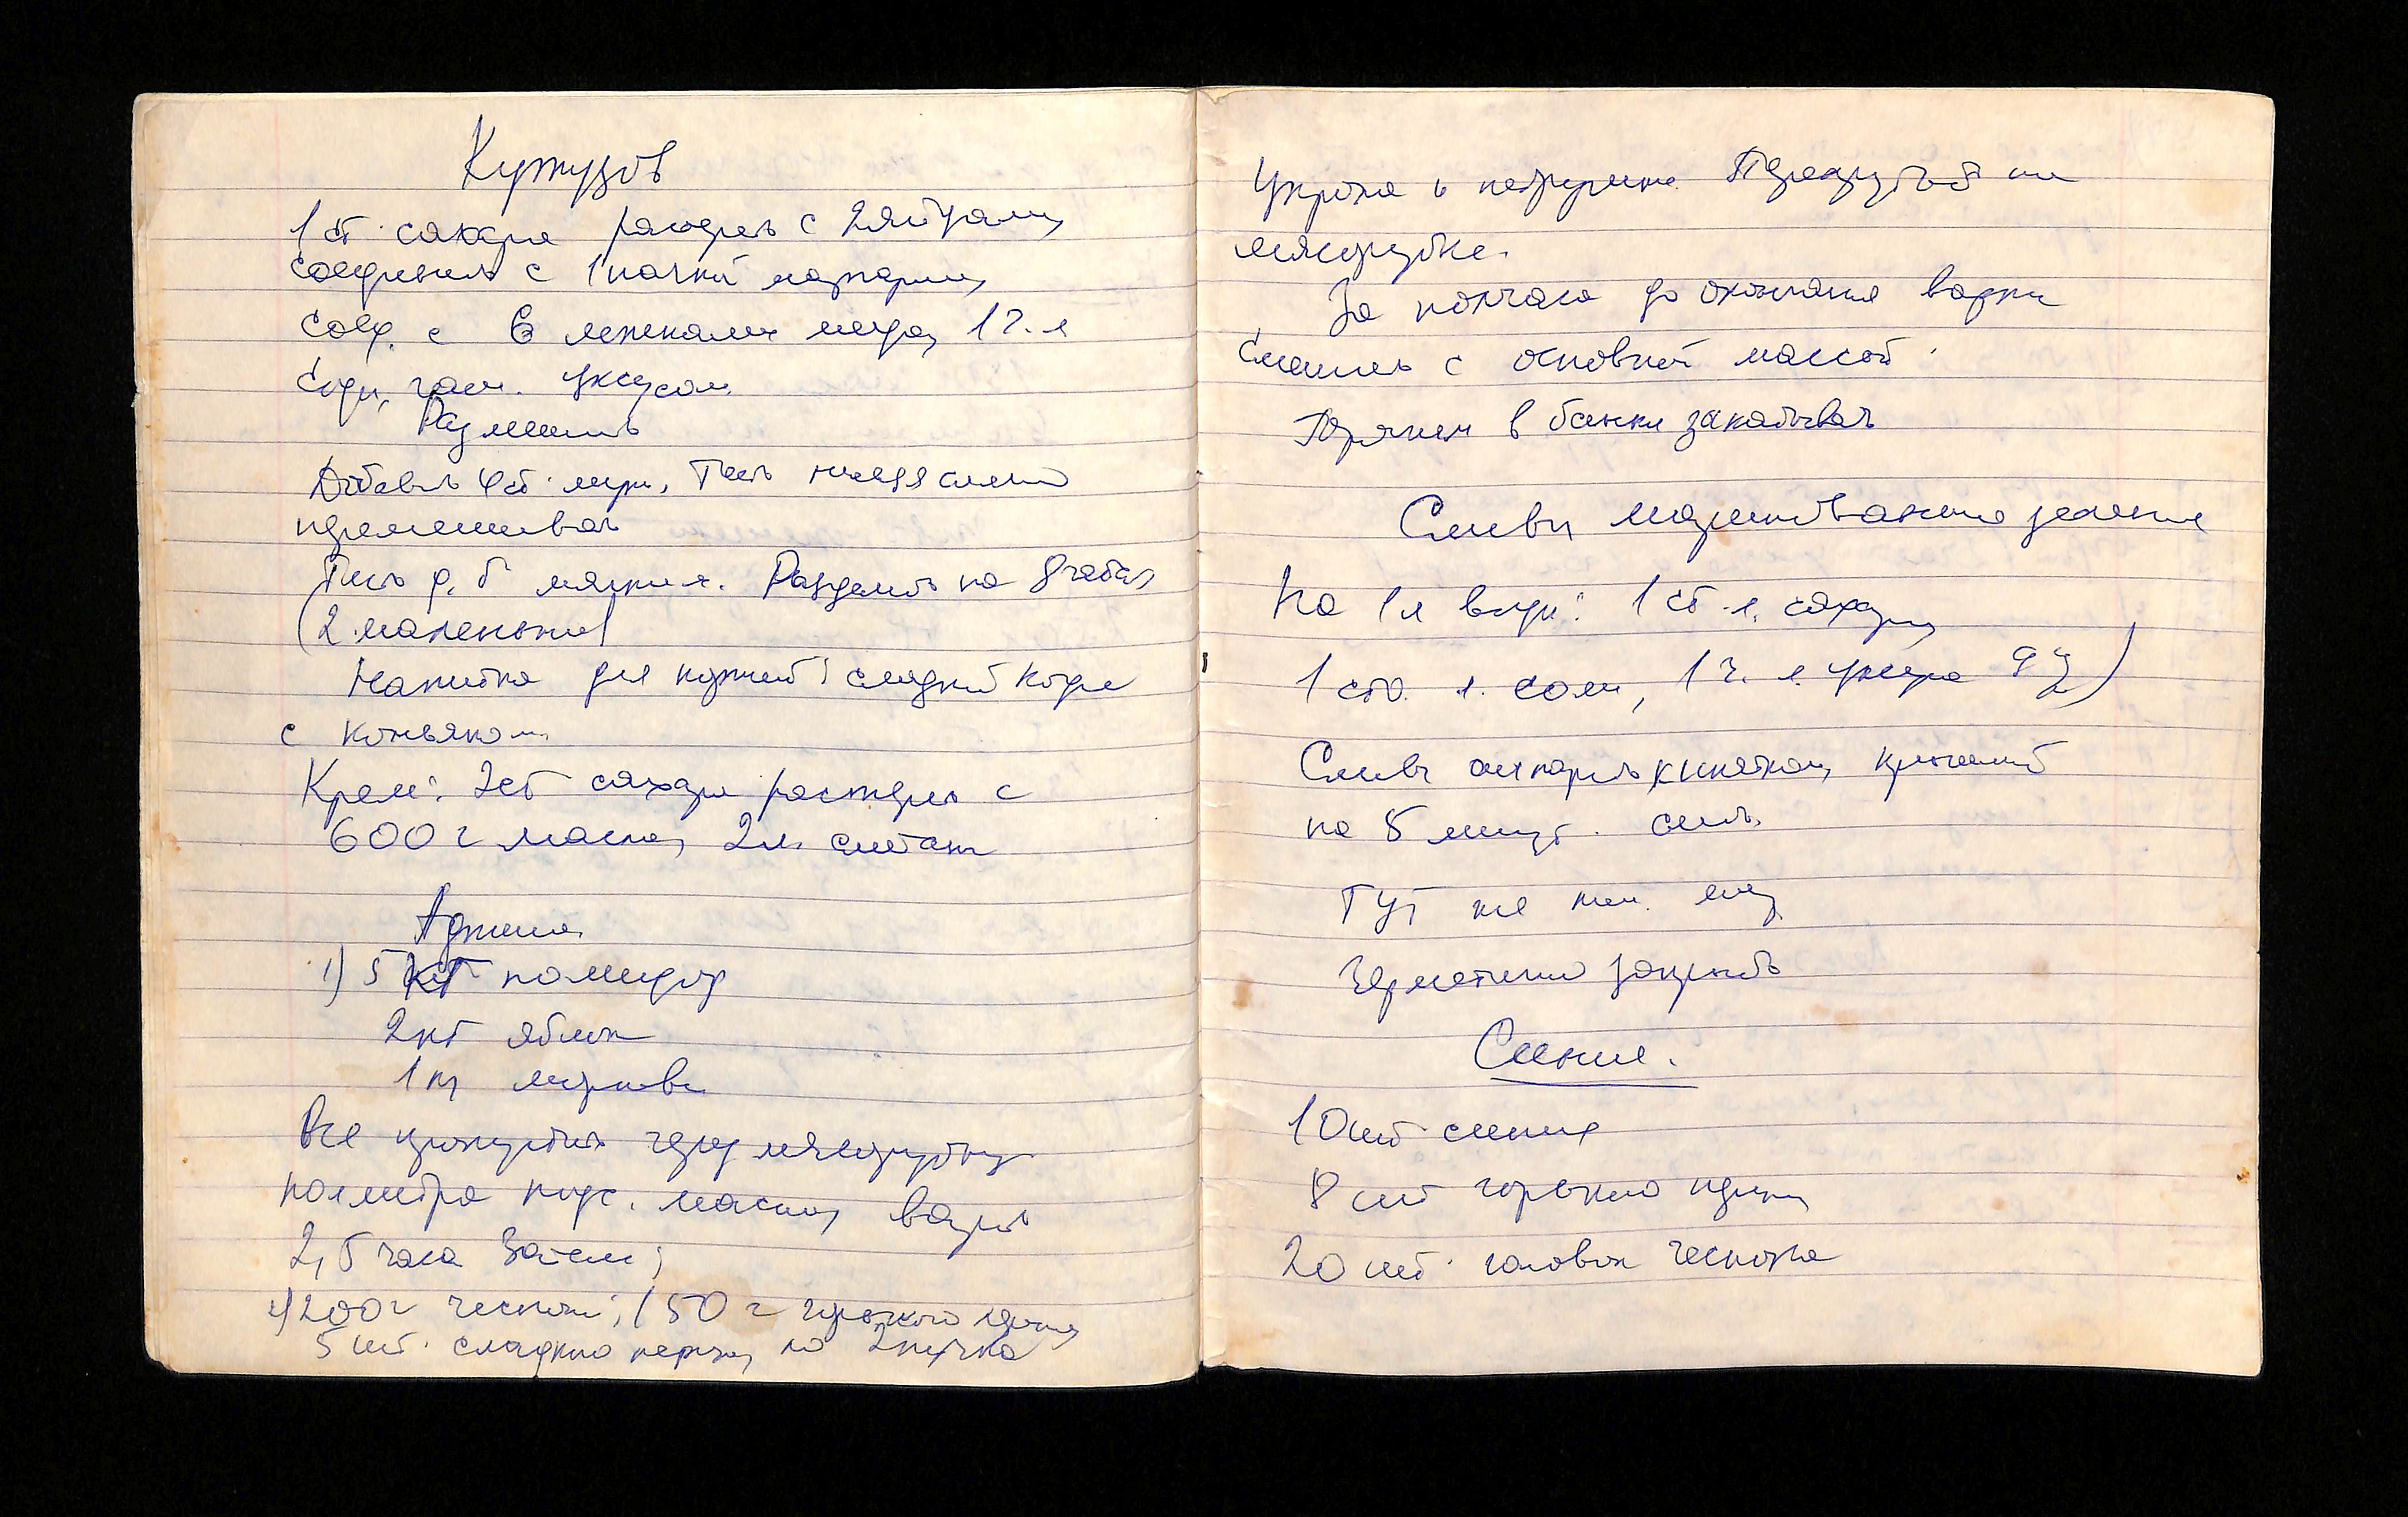 Кутузов
1 ст. сахара растереть с 2 яйцами
соединить с 1 пачкой маргарина
соед. с 6 ложками меда, 1 ч. л
соды, гаш. уксусом.
Размешать
Добавить 4 ст. муки, тесто
перемешивать
Тесто д. б мягким. Разделить на 8 частей
(2 маленькие)
Напитка для коржей: сладкий кофе
с коньяком.
Крем: 2 ст сахара растереть с
600 г масла, сметаны
Аджика
1) 5 кг помидор
2 кг яблок
1 кг моркови
Все пропустить через мясорубку
пол литра раст. масла, варить
2,5 часа Затем;
2) 200 г чеснока; 150 г горького перца
5 шт. сладкого перца, по 2 пучка
укропа и петрушки. Перекрутить на
мясорубке.
За полчаса до окончания варки
смешать с основной массой.
Горячем в банки закатывать
Сливы маринованные зеленые
На 1 л воды: 1 ст. л. сахара,
1 сто. л. соли, 1 ч. л. уксуса 9%)
Сливы ошпарить кипятком,
на 5 минут. слить.
Тут же
Герметично закупорить
Синие.
10 шт синих
8 шт горького перца
20 шт. головок чеснока